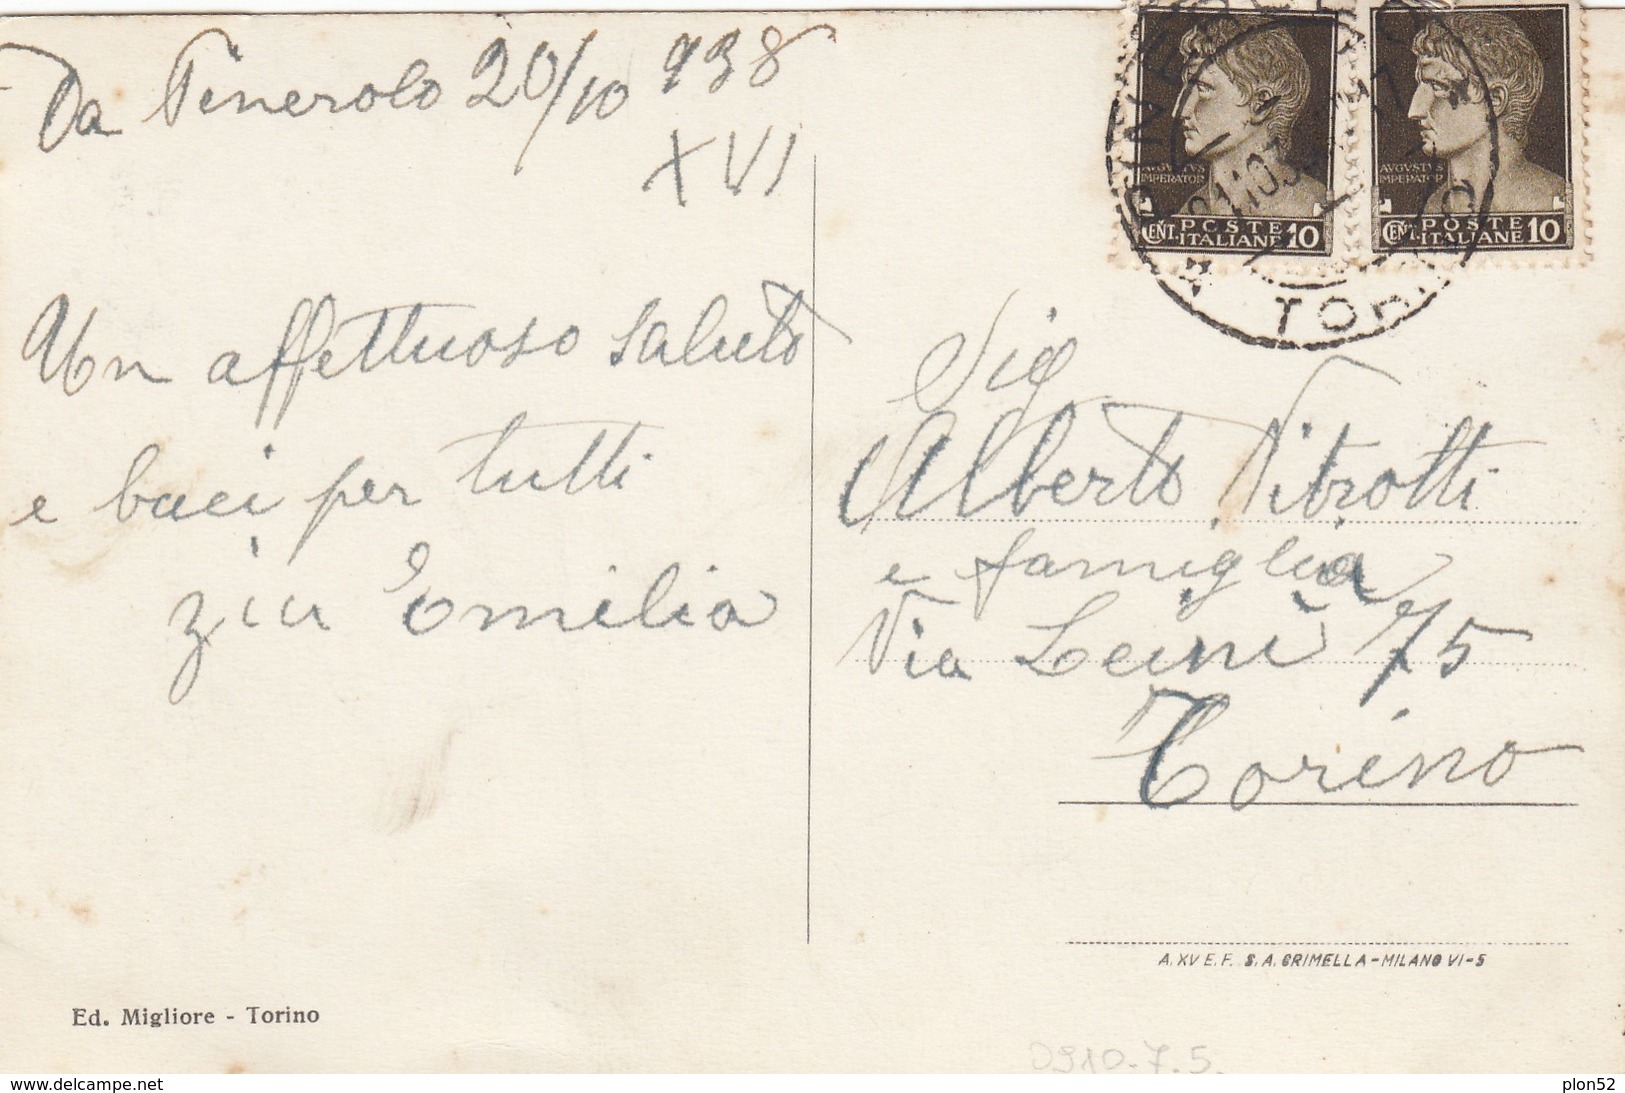 Da Pinerolo 20/10 938
XVI
Un affettuoso saluto
e baci per tutti
zia Emilia
Ed. Migliore - Torino
AVGVSTVS
IMPERATOR
CENT. POSTE
ITALIANE 10
AVGVSTVS
IMPERATOR
CENT. POSTE
ITALIANE 10
TORINO
Sig
Alberto Vitrotti
e famiglia
Via Leini 75
Torino
A. XV E. F. S. A. GRIMELLA - MILANO VI-5
0910-7.5.
www.delcampe.net
plon52